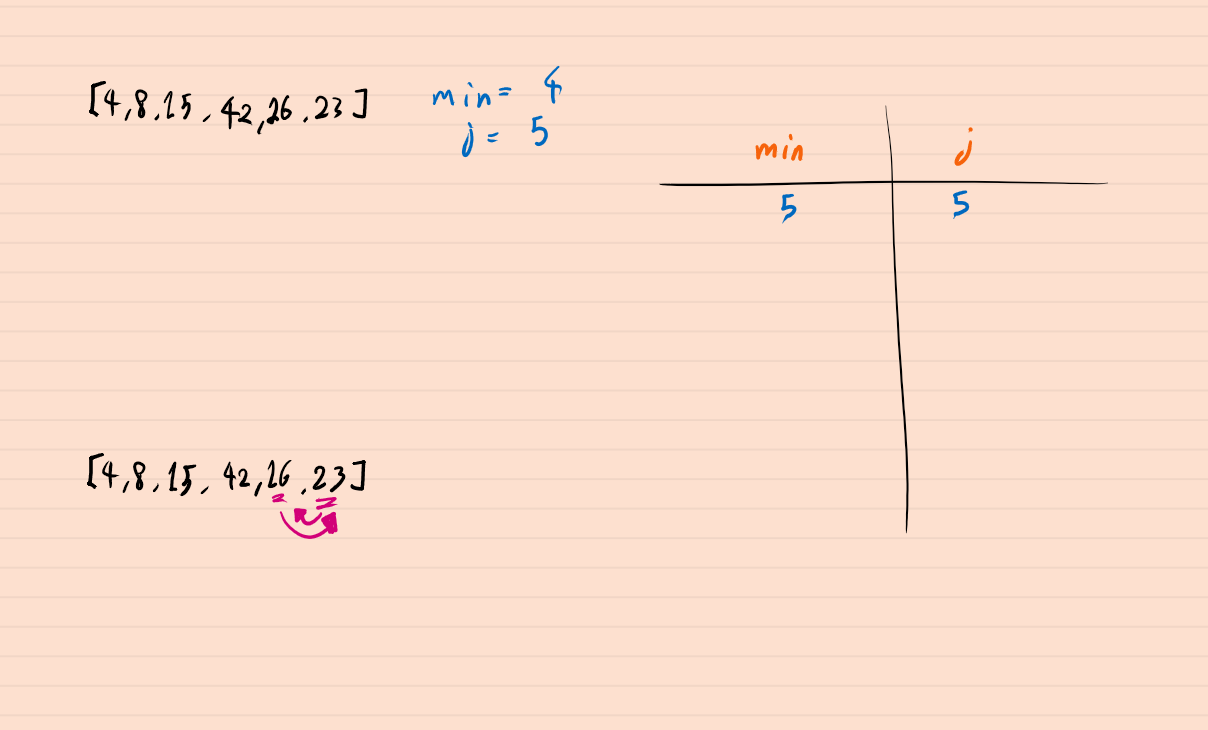 [4,8,15, 42,26,23]
min= 4
j= 5
min j
5 5
[4,8,15, 42,26,23]